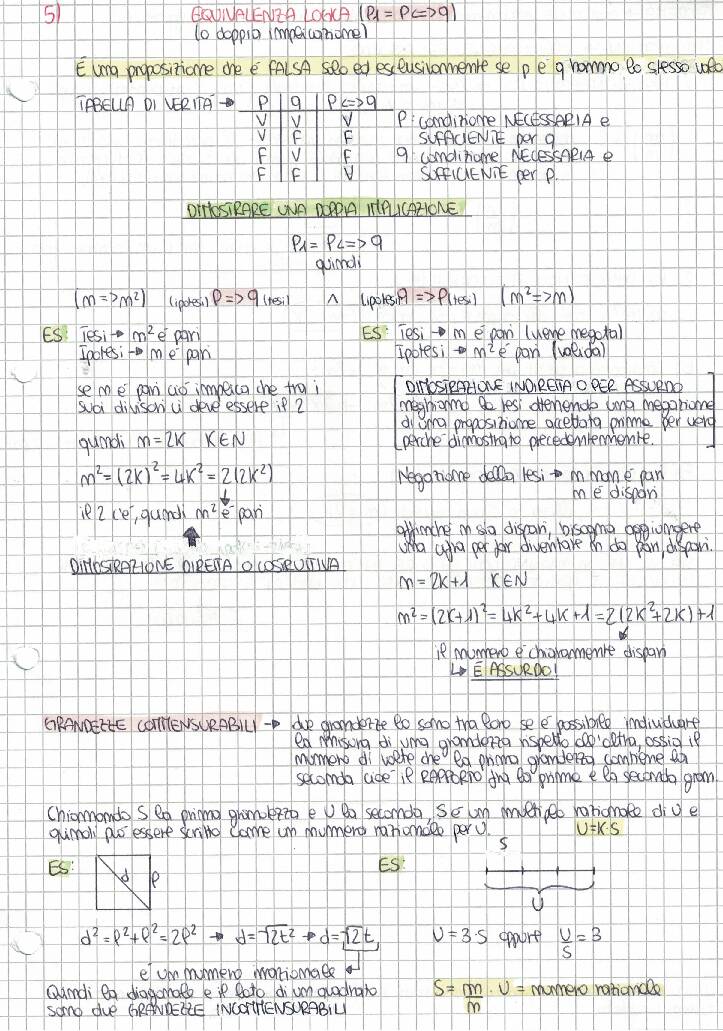 5) EQUIVALENZA LOGICA (P1 = P<=>q)
(o doppia implicazione)
È una proposizione che è FALSA solo ed esclusivamente se p e q hanno lo stesso valo
TABELLA DI VERITÀ → P | q | P<=>q
V | V | V
V | F | F
F | V | F
F | F | V
P: condizione NECESSARIA e
SUFFICIENTE per q
q: condizione NECESSARIA e
SUFFICIENTE per P.
DIMOSTRARE UNA DOPPIA IMPLICAZIONE
P1 = P<=>q
quindi
(n=>n²) (ipotesi) P=>q (tesi) ∧ (ipotesi) q=>P (tesi) (n²=>n)
ES: Tesi → n² é pari
Ipotesi → n é pari
se n é pari ció implica che tra i
suoi divisori ci deve essere il 2
quindi n=2K K∈N
n²=(2K)²=4K²=2(2K²)
il 2 c'é, quindi n² é pari
DIMOSTRAZIONE DIRETTA O COSTRUTTIVA
ES: Tesi → n é pari (viene negata)
Ipotesi → n² é pari (valida)
DIMOSTRAZIONE INDIRETTA O PER ASSURDO
neghiamo la tesi ottenendo una negazione
di una proposizione accettata prima per vera
perché dimostrato precedentemente.
Negazione della tesi → n non é pari
n é dispari
affinché n sia dispari, bisogna aggiungere
una cifra per far diventare n da pari, dispari.
n=2K+1 K∈N
n²=(2K+1)²=4K²+4K+1=2(2K²+2K)+1
il numero é chiaramente dispari
↳ É ASSURDO!
GRANDEZZE COMMENSURABILI → due grandezze lo sono tra loro se é possibile individuare
la misura di una grandezza rispetto all'altra, ossia il
numero di volte che la prima grandezza contiene la
seconda cioé il RAPPORTO tra la prima e la seconda gran.
Chiamando S la prima grandezza e U la seconda, S é un multiplo razionale di U e
quindi puó essere scritto come un numero razionale per U. U=K·S
ES: d ℓ
d²=ℓ²+ℓ²=2ℓ² → d=√2ℓ² → d=√2ℓ
é un numero irrazionale
Quindi la diagonale e il lato di un quadrato
sono due GRANDEZZE INCOMMENSURABILI
ES: S
U
U=3·S oppure U/S=3
S=m/n·U = numero razionale